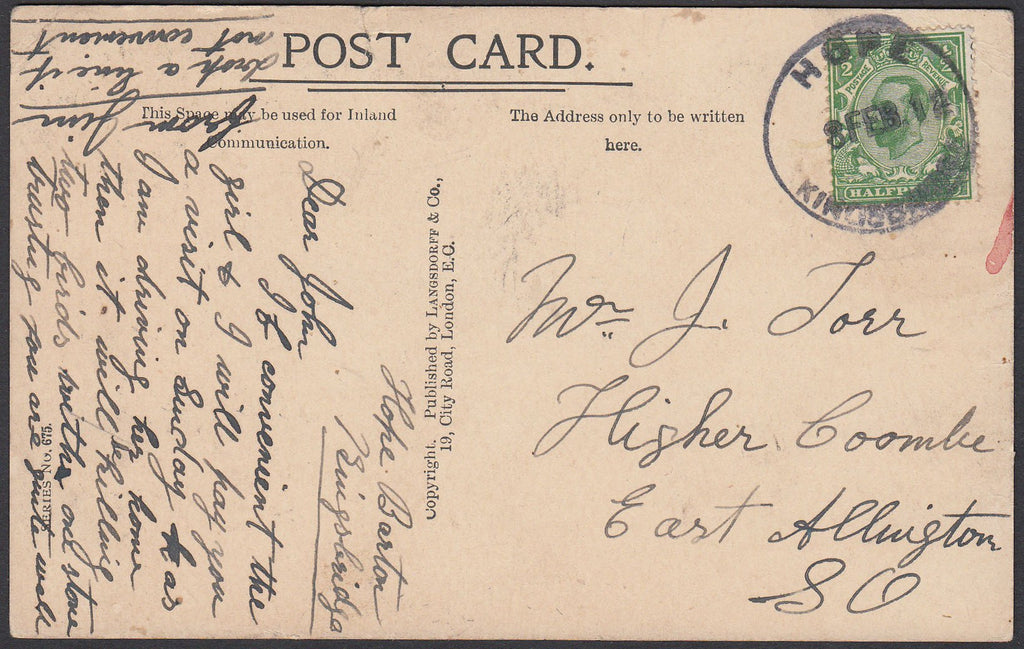 POST CARD.
This Space may be used for Inland
Communication.
The Address only to be written
here.
Hope Barton
Kingsbridge
Dear John
If convenient the
girl & I will pay you
a visit on Sunday as
I am driving her home
then it will be killing
two birds with one stone
trusting you are quite well
from Jim.
drop a line if
not convenient
SERIES No. 675.
Copyright. Published by LANGSDORFF & Co.,
19, City Road, London, E.C.
HOPE
8 FEB. 12
POSTAGE
REVENUE
Mr. J. Torr
Higher Coombe
East Allington
S O